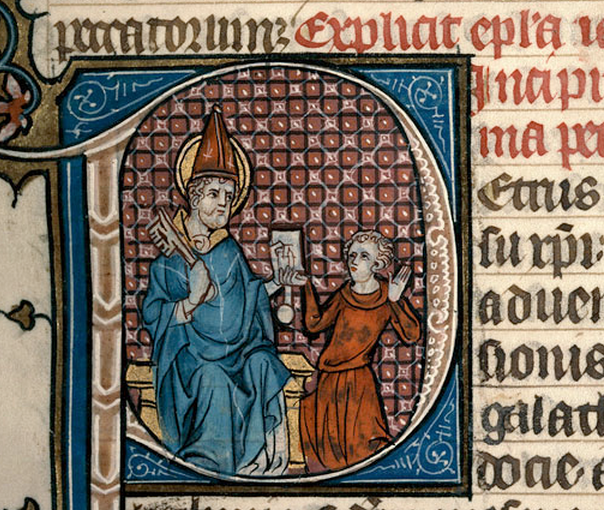 peccatorum; Explicit epl'a
Incipi
ma pet
Etrus
su xp̄i
aduen
sionis
galath
docie